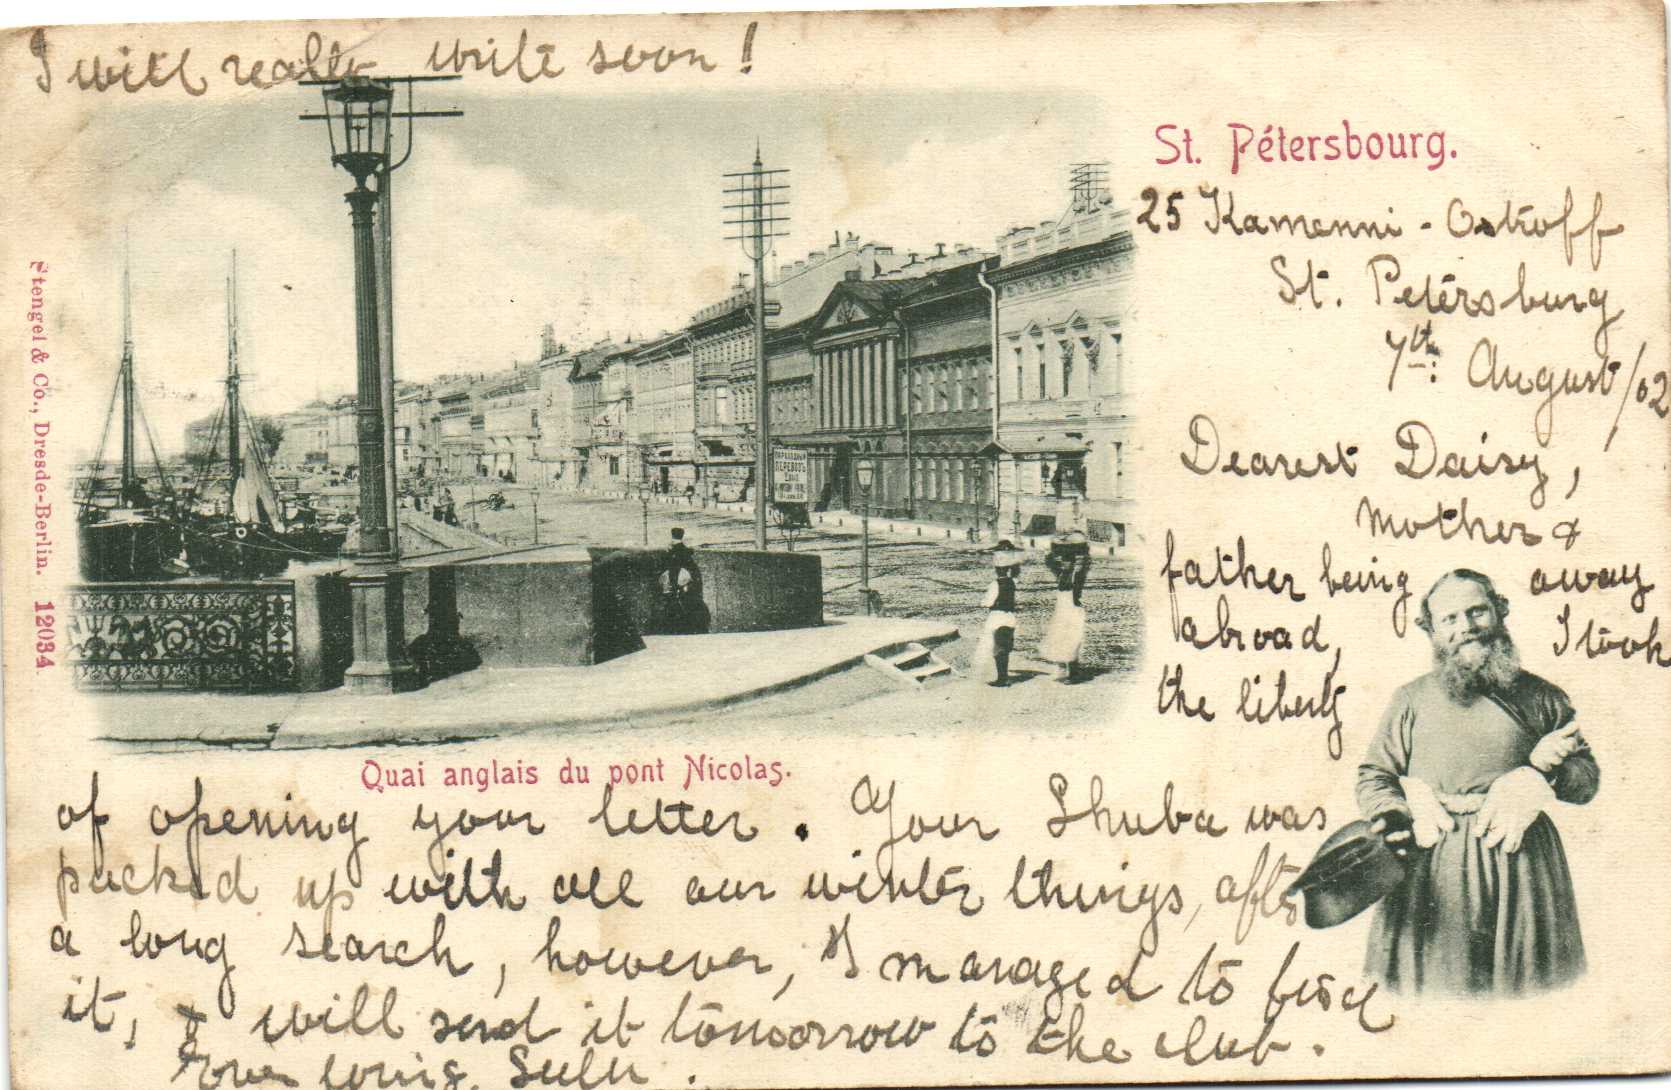 I will really write soon!
St. Pétersbourg.
25 Kamenni - Ostroff
St. Petersburg
7th August/02
Dearest Daisy,
Mother &
father being away
abroad, I took
the liberty
Quai anglais du pont Nicolas.
of opening your letter. Your Shuba was
packed up with all our winter things, after
a long search, however, I managed to find
it, & will send it tomorrow to the club.
Stengel & Co., Dresde-Berlin. 12034
ПЕРЕВОЗЪ